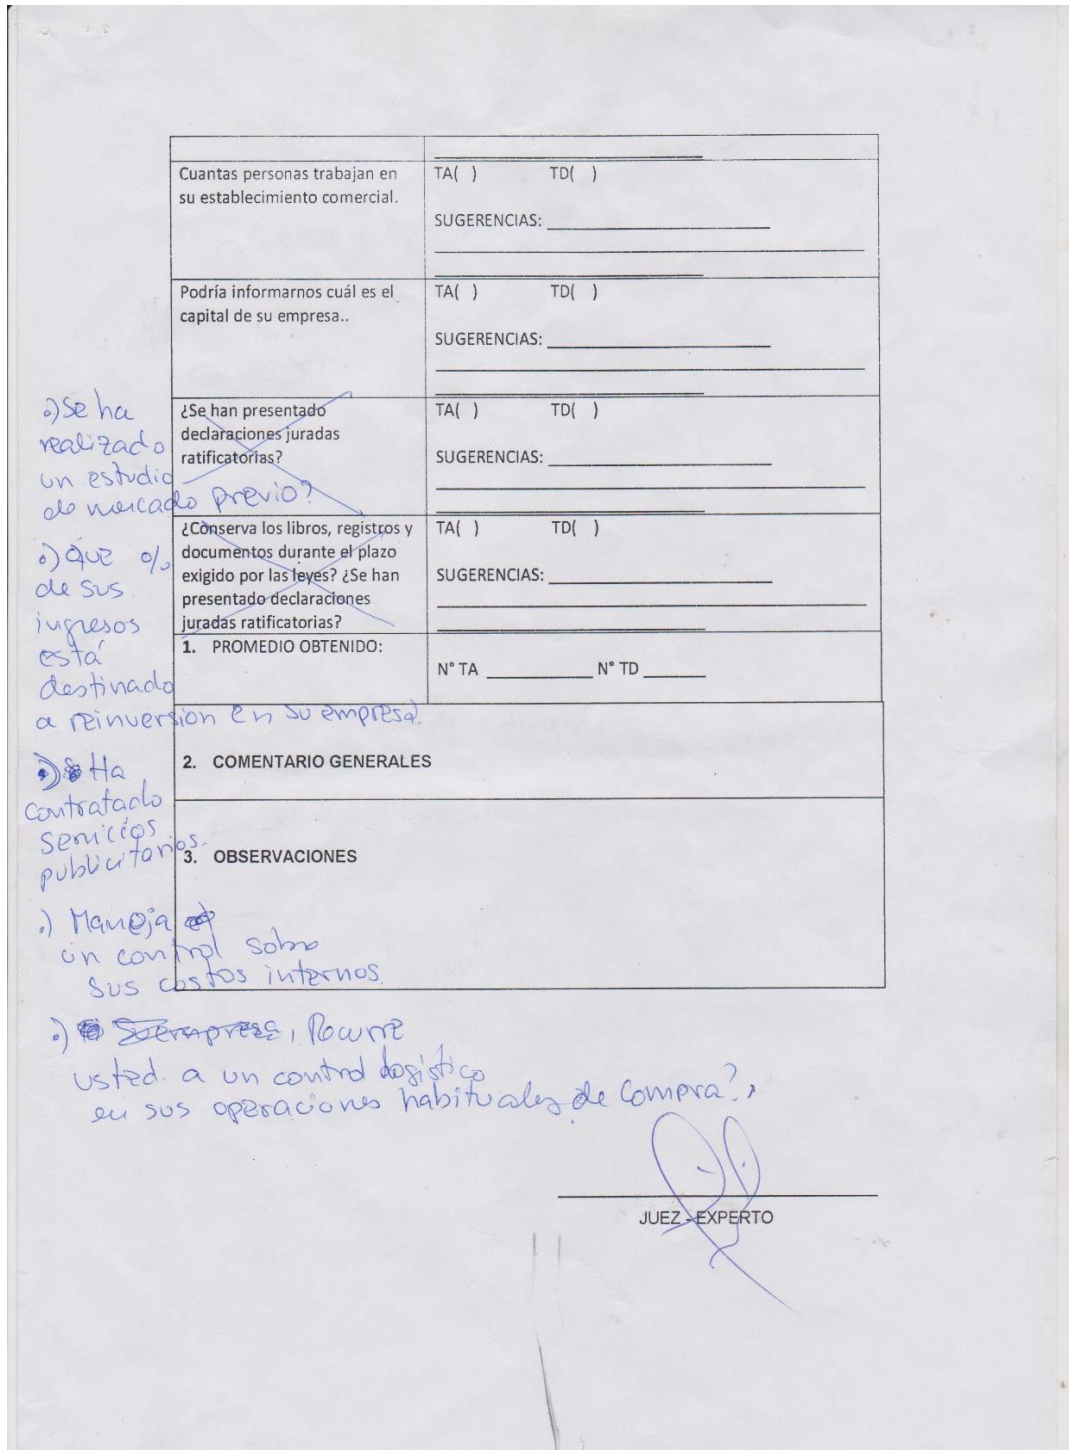 Cuantas personas trabajan en
su establecimiento comercial.
TA( ) TD( )
SUGERENCIAS:
Podría informarnos cuál es el
capital de su empresa..
TA( ) TD( )
SUGERENCIAS:
¿Se han presentado
declaraciones juradas
ratificatorias?
TA( ) TD( )
SUGERENCIAS:
¿Conserva los libros, registros y
documentos durante el plazo
exigido por las leyes? ¿Se han
presentado declaraciones
juradas ratificatorias?
TA( ) TD( )
SUGERENCIAS:
1. PROMEDIO OBTENIDO:
N° TA N° TD
2. COMENTARIO GENERALES
3. OBSERVACIONES
.) Se ha
realizado
un estudio
de mercado previo?
.) Que %
de sus
ingresos
está
destinado
a reinversion en su empresa.
.) Ha
contratado
servicios
publicitarios.
.) Maneja
un control sobre
sus costos internos
.) Su empresa, Recurre
usted a un control logístico
en sus operaciones habituales de compra?
JUEZ - EXPERTO